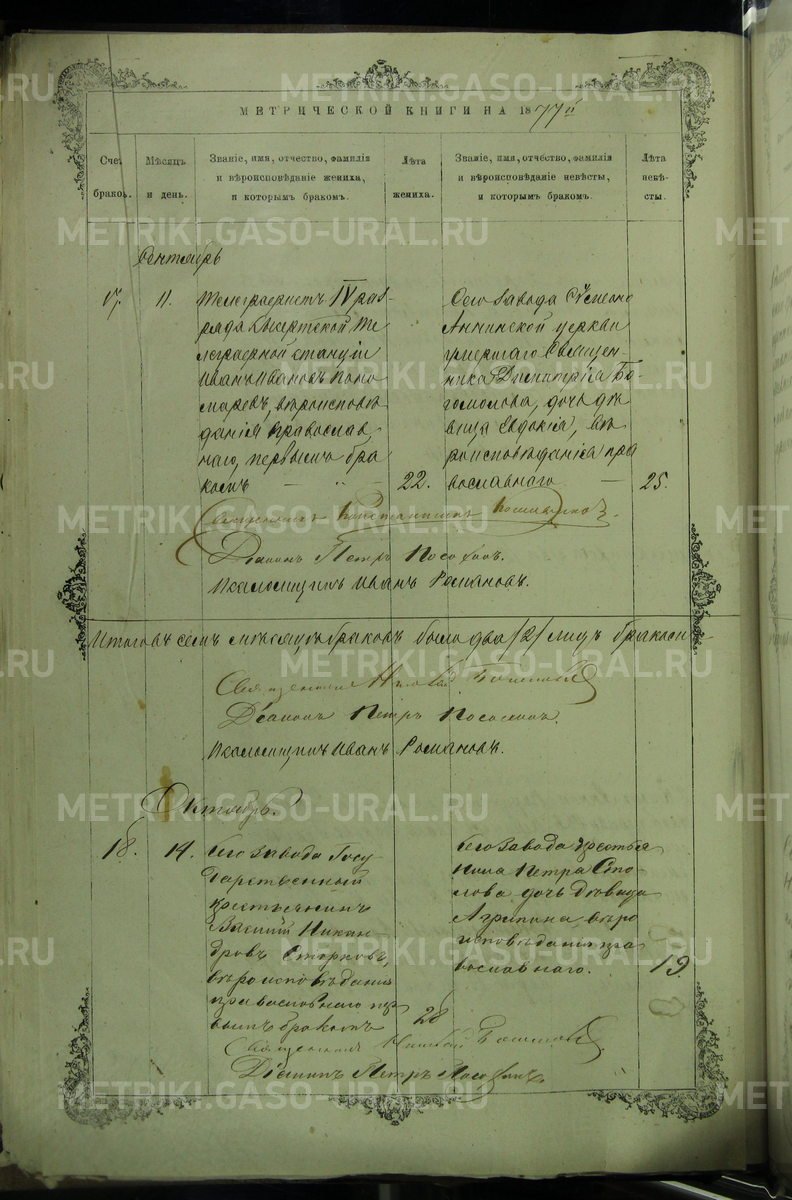 МЕТРИЧЕСКОЙ КНИГИ НА 1877й
Счет браковъ.
Мѣсяцъ и день.
Званіе, имя, отчество, фамилія и вѣроисповѣданіе жениха, и которымъ бракомъ.
Лѣта жениха.
Званіе, имя, отчество, фамилія и вѣроисповѣданіе невѣсты, и которымъ бракомъ.
Лѣта невѣсты.
Сентябрь
17. 11.
Телеграфистъ IV раз-
ряда Сысертской Те-
леграфной станціи
Иванъ Ивановъ Поно-
маревъ, вѣроисповѣ
данія православ
наго, первымъ бра
комъ
22.
Сего завода Симеоно
Аннинской церкви
умершаго Священ-
ника Димитрія Бо-
гомолова, дочь дѣ
вица Евдокія, вѣ
роисповѣданія пра
вославнаго
25.
Священникъ Константинъ
Діаконъ Петръ
Псаломщикъ Иванъ Романовъ.
Итого въ семъ мѣсяцѣ браковъ было два /2/ лицъ
Священникъ
Діаконъ Петръ
Псаломщикъ Иванъ Романовъ.
Октябрь.
18. 14.
Сего завода Госу
дарственный
крестьянинъ
Василій Никан
дровъ
вѣроисповѣданія
православнаго пер
вымъ бракомъ
Сего завода крестья
нина Петра
дочь дѣвица
Агрипина вѣро
исповѣданія пра
вославнаго.
19.
Священникъ
Діаконъ Петръ
METRIKI.GASO-URAL.RU